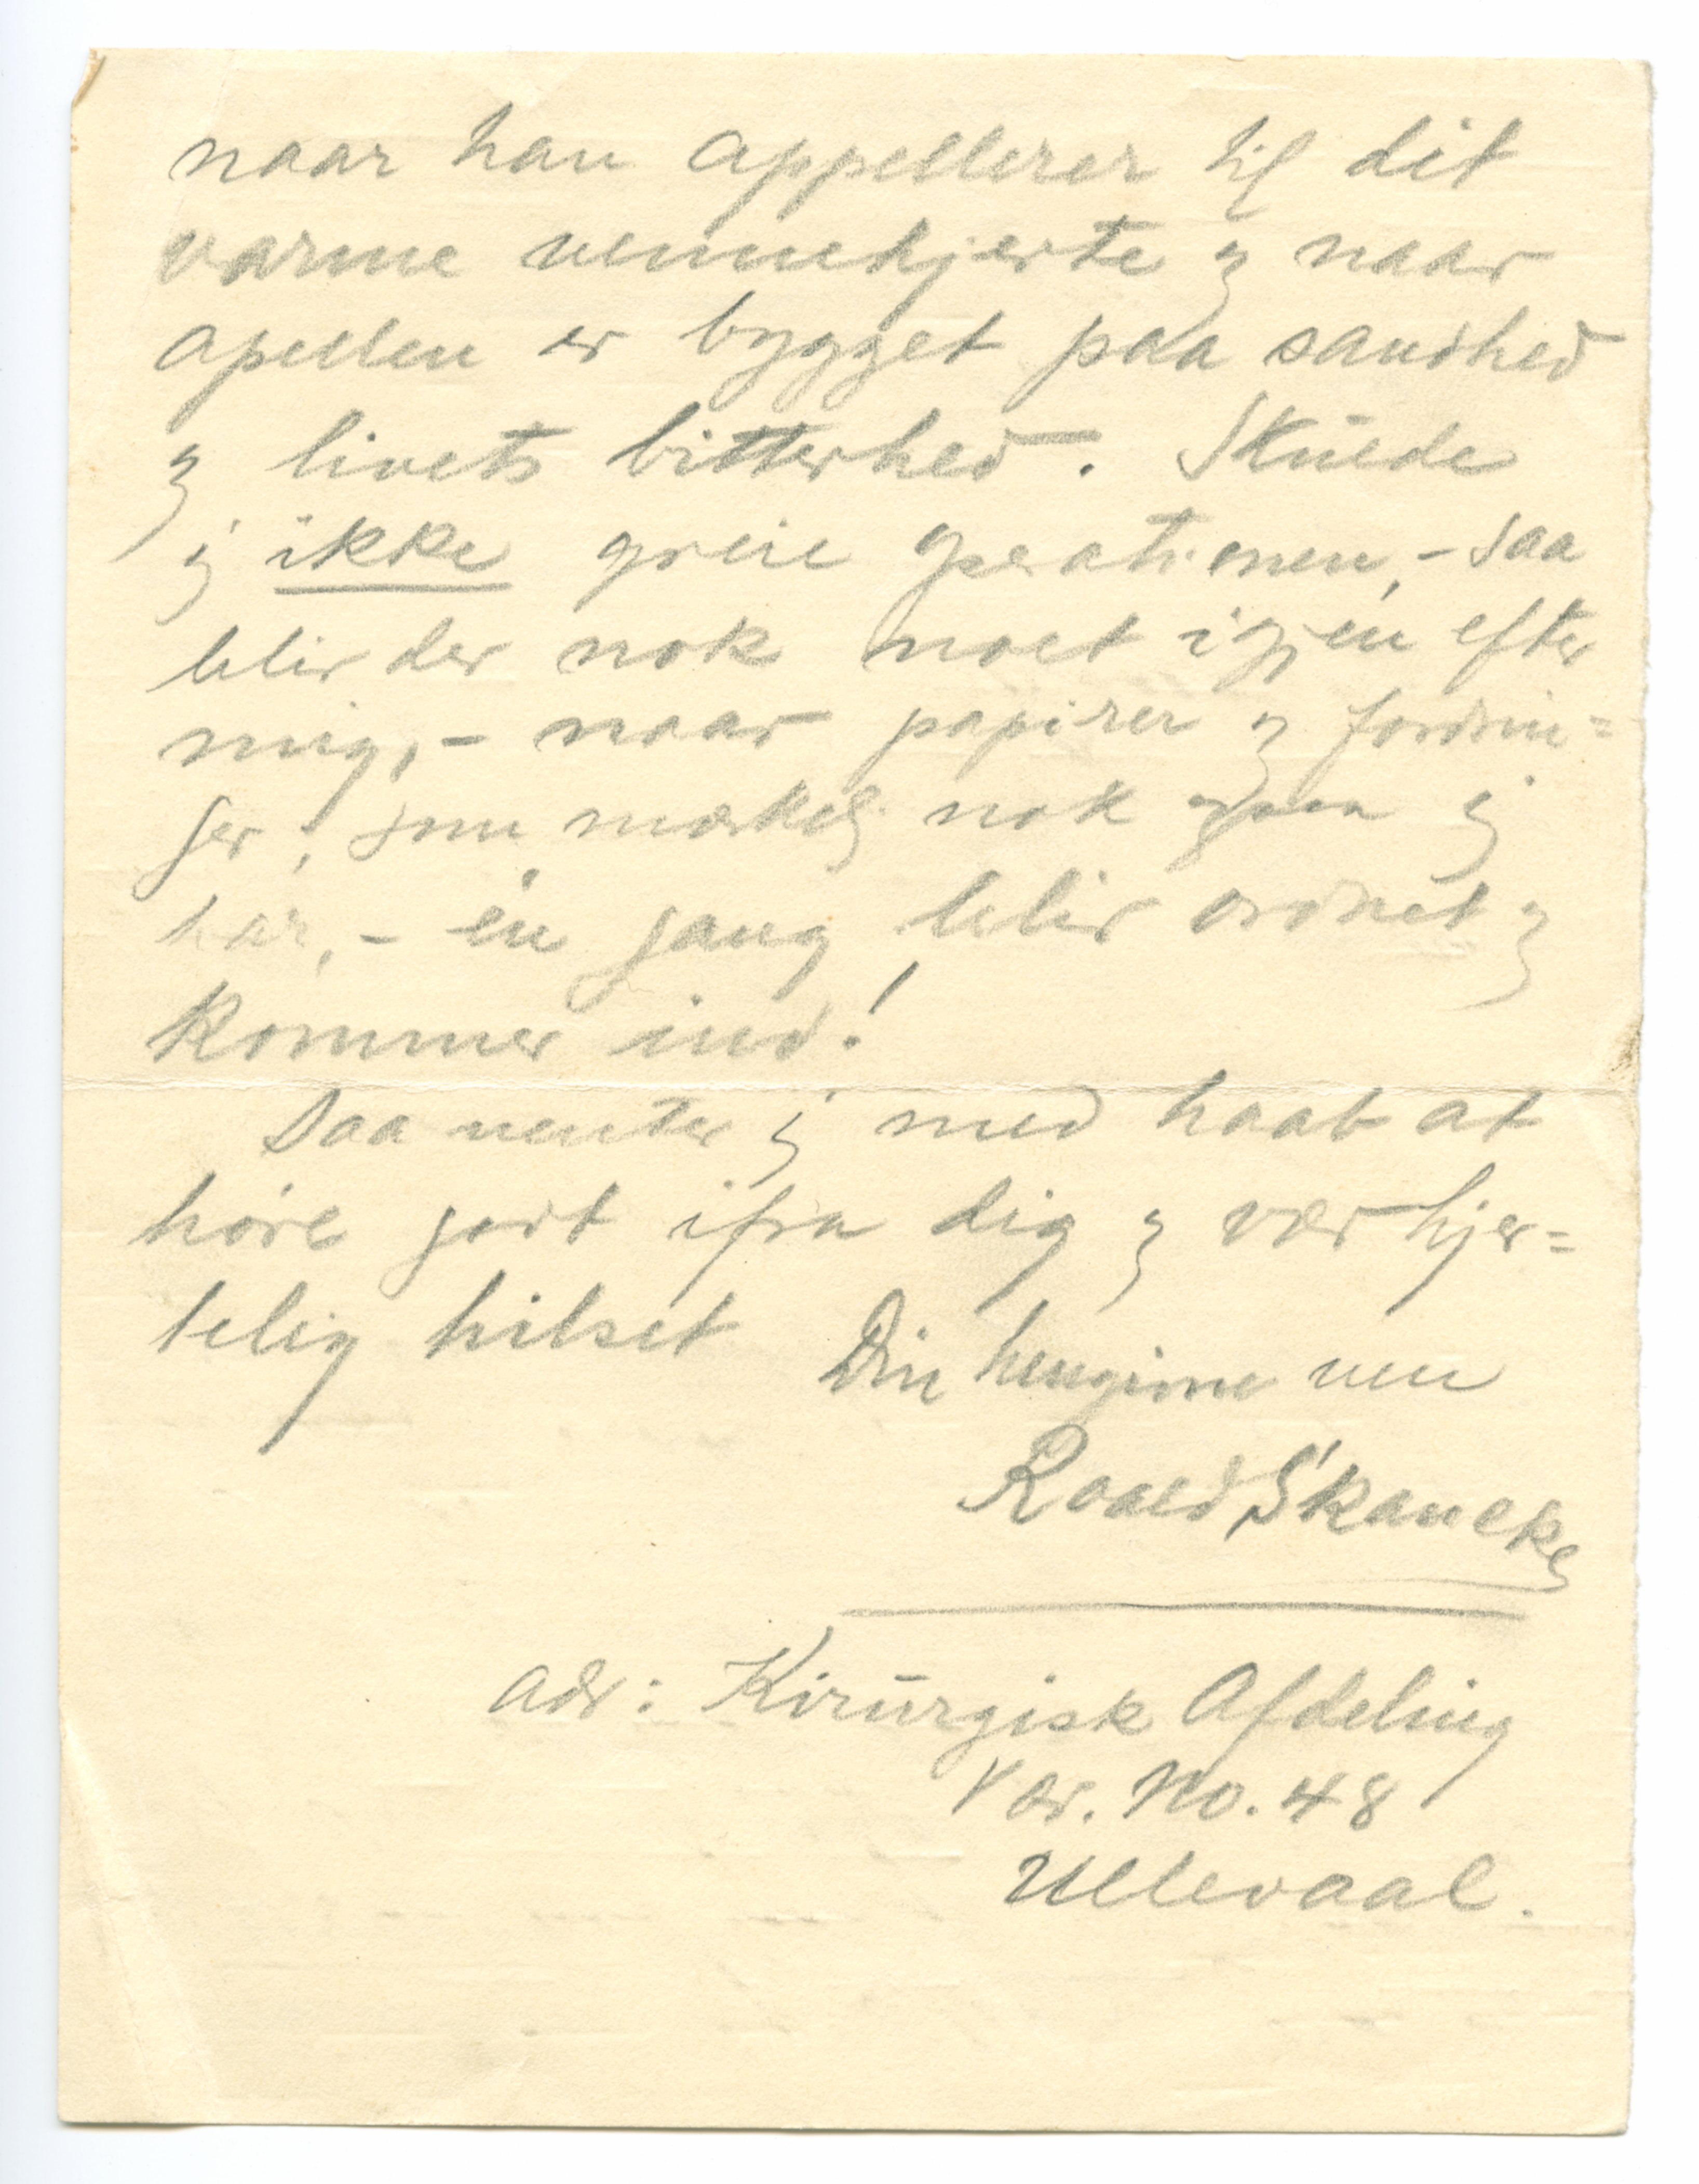 naar han appellerer til dit
varme vennehjerte og naar
apellen er bygget paa sandhed
og livets bitterhed. Skulde
j ikke greie operationen, - saa
blir der nok noet igjén efter
mig, - naar papirer og fordrin=
ger, som mærkelig nok ogsaa j
har, - én gang blir ordnet og
kommer ind!
Saa venter j med haab at
höre godt ifra dig og vær hjer=
telig hilset Din hengivne ven
Roald Skancke
adr: Kirurgisk Afdeling
Vær. No. 48
Ullevaal.